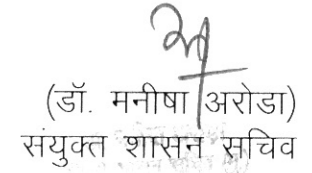 (डॉ. मनीषा अरोडा)
संयुक्त शासन सचिव